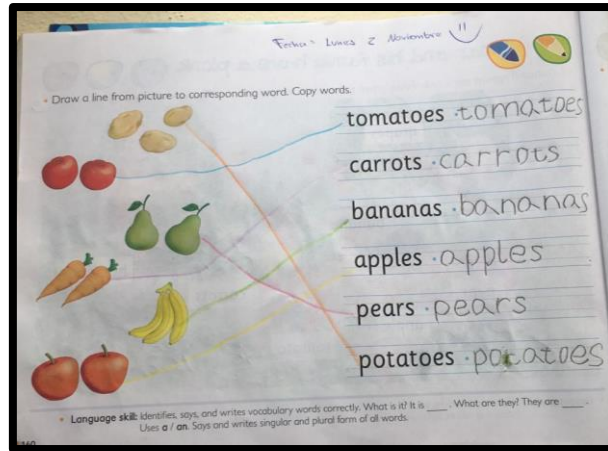 Fecha: Lunes 2 Noviembre
• Draw a line from picture to corresponding word. Copy words.
tomatoes · tomatoes
carrots · carrots
bananas · bananas
apples · apples
pears · pears
potatoes · potatoes
• Language skill: Identifies, says, and writes vocabulary words correctly. What is it? It is ____. What are they? They are ____.
Uses a / an. Says and writes singular and plural form of all words.